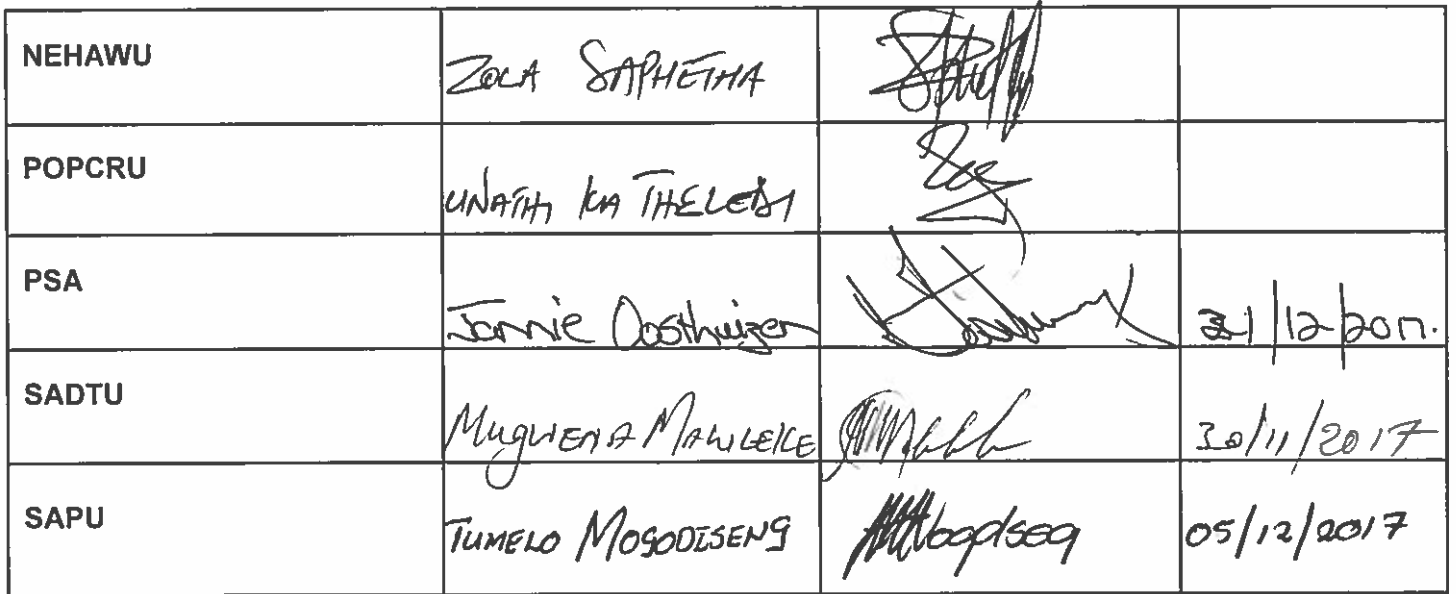 NEHAWU ZOLA SAPHETHA
POPCRU UNATHI KA THELEDI
PSA Jannie Oosthuizen 21/12/2017.
SADTU MUGWENA MALULEKE 30/11/2017
SAPU TUMELO MOGODISENG 05/12/2017